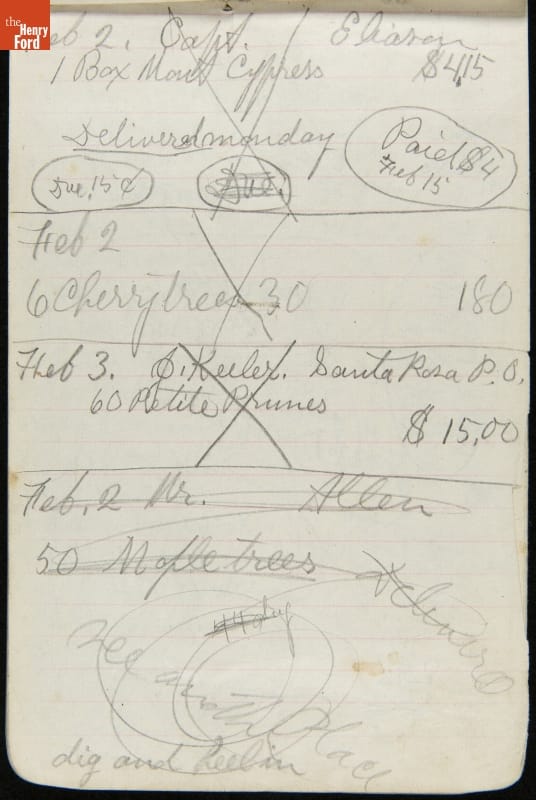 the
Henry
Ford
Feb 2. Capt. Eliason
1 Box Mont Cypress $4.15
Delivered monday
Paid $4
Feb 15
Due. 15¢
Due.
Feb 2
6 Cherry trees 30 180
Feb 3. J. Keeler. Santa Rosa P.O.
60 Petite Prunes
$15,00
Feb, 2 Mr. Allen
50 Maple trees
Delivered
dig
See Place
dig and heel in